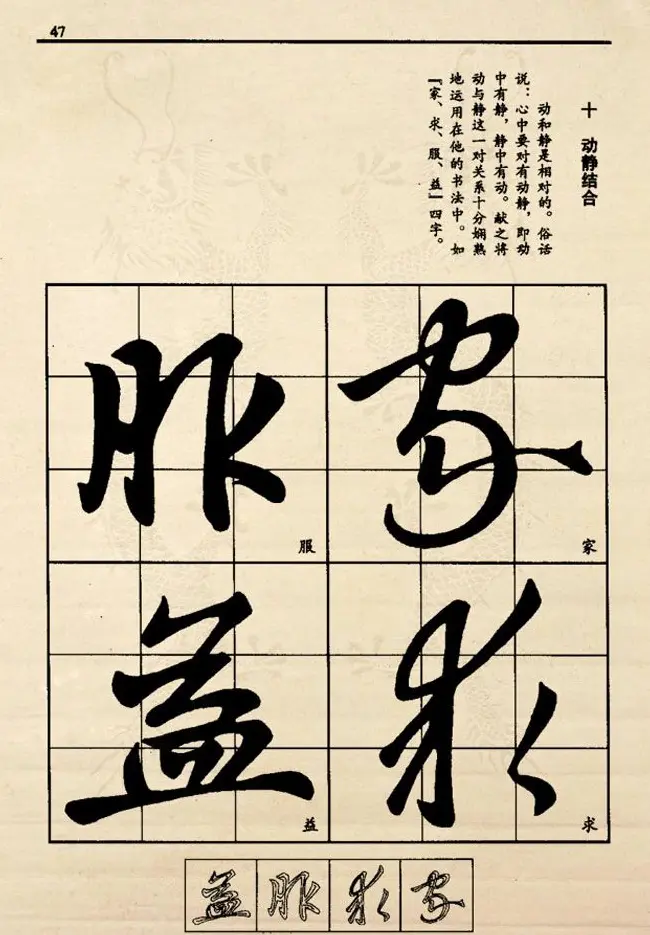 47
十 动静结合
动和静是相对的。俗话
说：心中要对有动静，即动
中有静，静中有动。献之将
动与静这一对关系十分娴熟
地运用在他的书法中。如
『家、求、服、益』四字。
家
家
求
求
服
服
益
益
益服求家